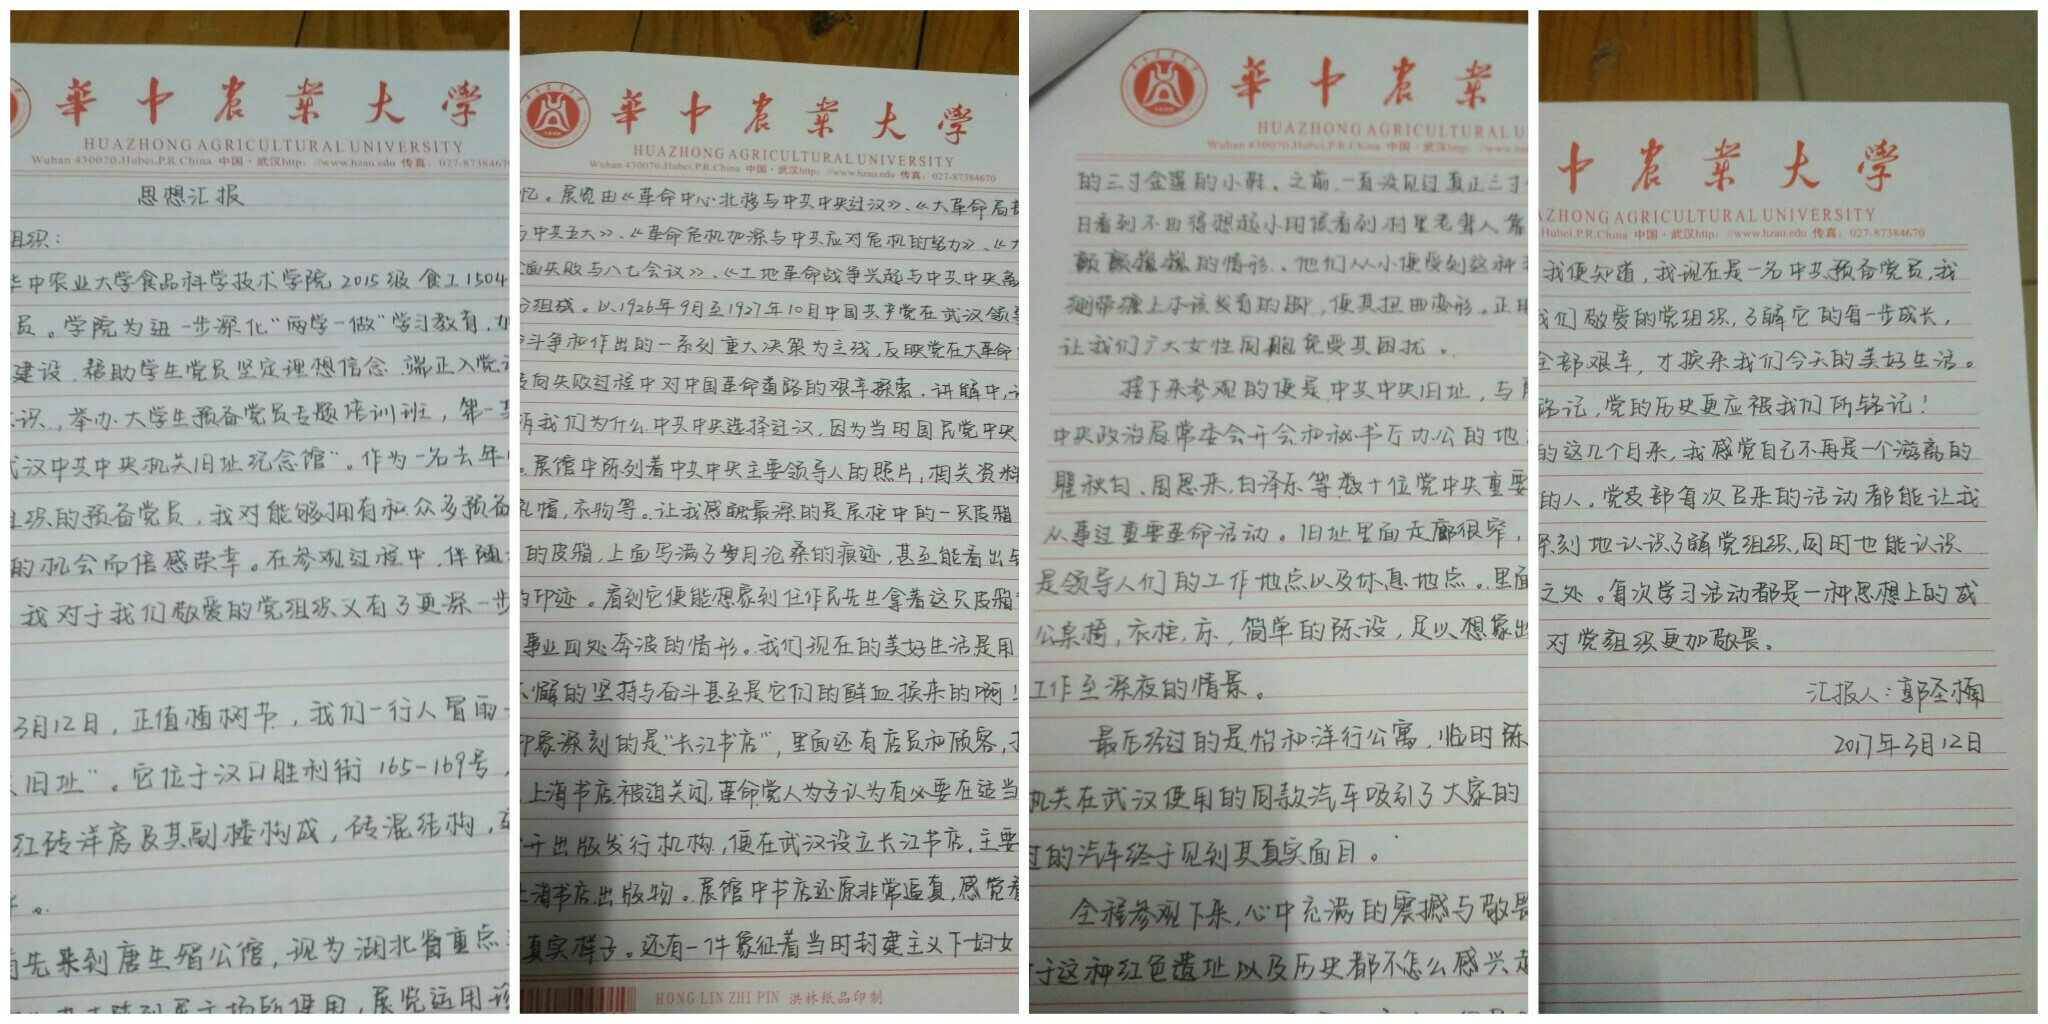 華中农業大学
HUAZHONG AGRICULTURAL UNIVERSITY
Wuhan 430070.Hubei,P.R.China 中国·武汉http: //www.hzau.edu 传真: 027-8738467
思想汇报
组织：
华中农业大学食品科学技术学院2015级食工1504
员。学院为进一步深化“两学一做”学习教育，加
建设，帮助学生党员坚定理想信念，端正入党
识，举办大学生预备党员专题培训班，第一
武汉中共中央机关旧址纪念馆”。作为一名去年
组织的预备党员，我对能够拥有和众多预备
的机会而倍感荣幸。在参观过程中，伴随
我对于我们敬爱的党组织又有了更深一步
3月12日，正值植树节，我们一行人冒雨
旧址”。它位于汉口胜利街165-169号，
红砖洋房及其副楼构成，砖混结构，
首先来到唐生智公馆，现为湖北省重点
展览运用
華中农業大学
HUAZHONG AGRICULTURAL UNIVERSITY
Wuhan 430070.Hubei,P.R.China 中国·武汉http: //www.hzau.edu 传真: 027-87384670
忆。展览由《革命中心北移与中共中央迁汉》、《大革命局部
与中共五大》、《革命危机加深与中共应对危机的努力》、《大
面失败与八七会议》、《土地革命战争兴起与中共中央离
组成。以1926年9月至1927年10月中国共产党在武汉领导
斗争和作出的一系列重大决策为主线，反映党在大革命
转向失败过程中对中国革命道路的艰辛探索。讲解中，
我们为什么中共中央选择迁汉，因为当时国民党中央
。展馆中陈列着中共中央主要领导人的照片，相关资料
礼帽，衣物等。让我感触最深的是展柜中的一只皮箱
的皮箱，上面写满了岁月沧桑的痕迹，甚至能看出
的印迹。看到它便能想象到任作民先生拿着这只皮箱
事业四处奔波的情形。我们现在的美好生活是用
不懈的坚持与奋斗甚至是它们的鲜血换来的啊！
印象深刻的是“长江书店”，里面还有店员和顾客，
上海书店被迫关闭，革命党人为了认为有必要在适当
开出版发行机构，便在武汉设立长江书店，主要
上海书店出版物。展馆中书店还原非常逼真，感觉
真实样子。还有一件象征着当时封建主义下妇女
HONG LIN ZHI PIN 洪林纸品印制
華中农業
HUAZHONG AGRICULTURAL U
Wuhan 430070.Hubei,P.R.China 中国·武汉http: //www.hz
的三寸金莲的小鞋。之前一直没见过真正三寸
日看到不由得想起小时候看到村里老辈人
颤颤巍巍的情形。他们从小便受到这种
绷带缠上本该发育的脚，使其扭曲变形。正
让我们广大女性同胞免受其困扰。
接下来参观的便是中共中央旧址，与
中央政治局常委会开会和秘书厅办公的地
瞿秋白、周恩来、毛泽东等数十位党中央重要
从事过重要革命活动。旧址里面走廊很窄，
是领导人们的工作地点以及休息地点。里面
公桌椅，衣柜，床，简单的陈设，足以想象出
工作至深夜的情景。
最后经过的是怡和洋行公寓，临时陈
机关在武汉使用的同款汽车吸引了大家的
过的汽车终于见到其真实面目。
全程参观下来，心中充满的震撼与敬畏
于这种红色遗址以及历史都不怎么感兴趣
中农業大学
AZHONG AGRICULTURAL UNIVERSITY
.Hubei,P.R.China 中国·武汉http: //www.hzau.edu 传真: 027-87384670
我便知道，我现在是一名中共预备党员，我
我们敬爱的党组织，了解它的每一步成长，
全部艰辛，才换来我们今天的美好生活。
铭记，党的历史更应被我们所铭记！
的这几个月来，我感觉自己不再是一个游离的
的人。党支部每次召来的活动都能让我
深刻地认识了解党组织，同时也能认识
之处。每次学习活动都是一种思想上的成
对党组织更加敬畏。
汇报人：郭圣楠
2017年3月12日